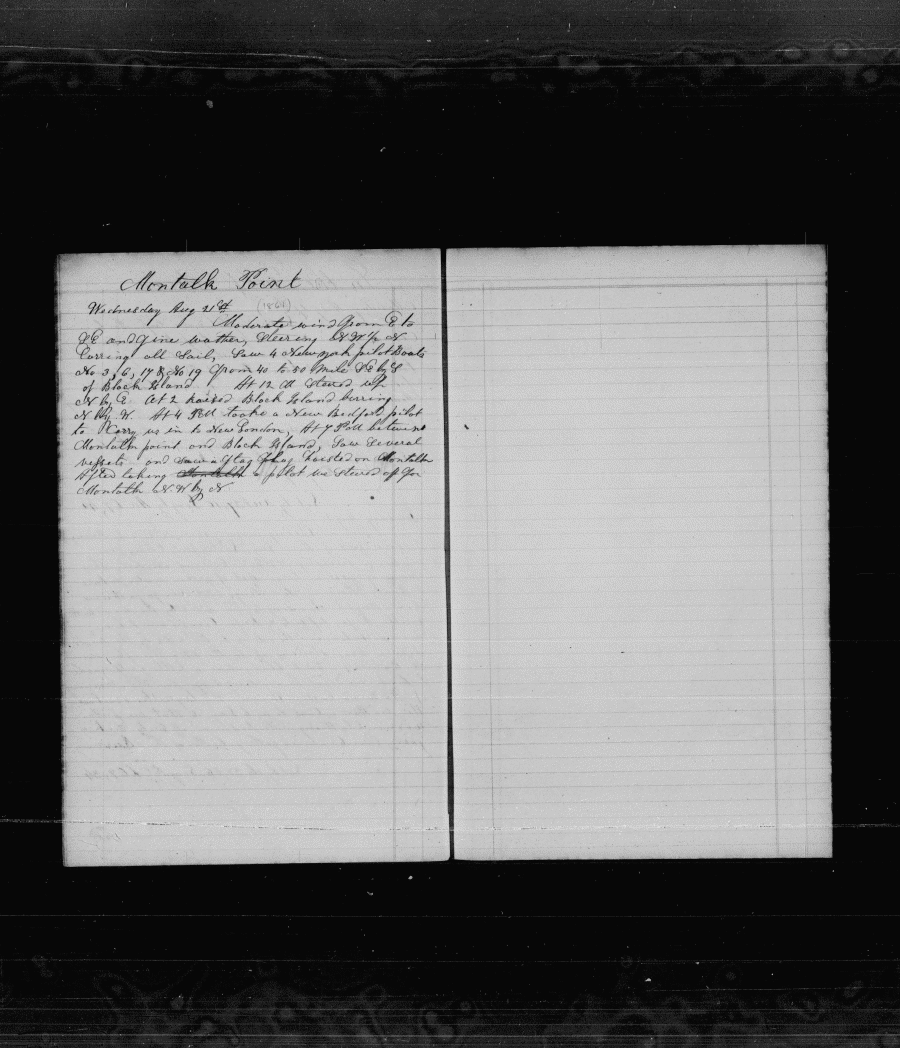 Montalk Point
Wednesday Aug 21st (1861)
Moderate wind from E to
SE and fine wather, Steering NW by N
Carring all Sail, Saw 4 New york pilot Boats
No 3, 6, 17 & No 19 from 40 to 50 Mile SE by S
of Black Island At 12 M Stered up
N by E At 2 raised Black Island barring
N by W. At 4 PM tooke a New Bedford pilot
to Carry us in to New London, At 7 PM between
Montalk point and Black Island, Saw Several
vessels and saw a flag hoisted on Montalk
After taking Montalk a pilot we Stered off for
Montalk N. W by N